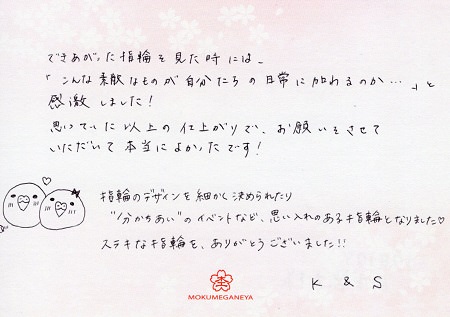 できあがった指輪を見た時には、
「こんな素敵なものが自分たちの日常に加わるのか…」と
感激しました！
思っていた以上の仕上がりで、お願いをさせて
いただいて本当によかったです！
指輪のデザインを細かく決められたり
"分かちあい"のイベントなど、思い入れのある指輪となりました♡
ステキな指輪を、ありがとうございました!!
K & S
MOKUMEGANEYA